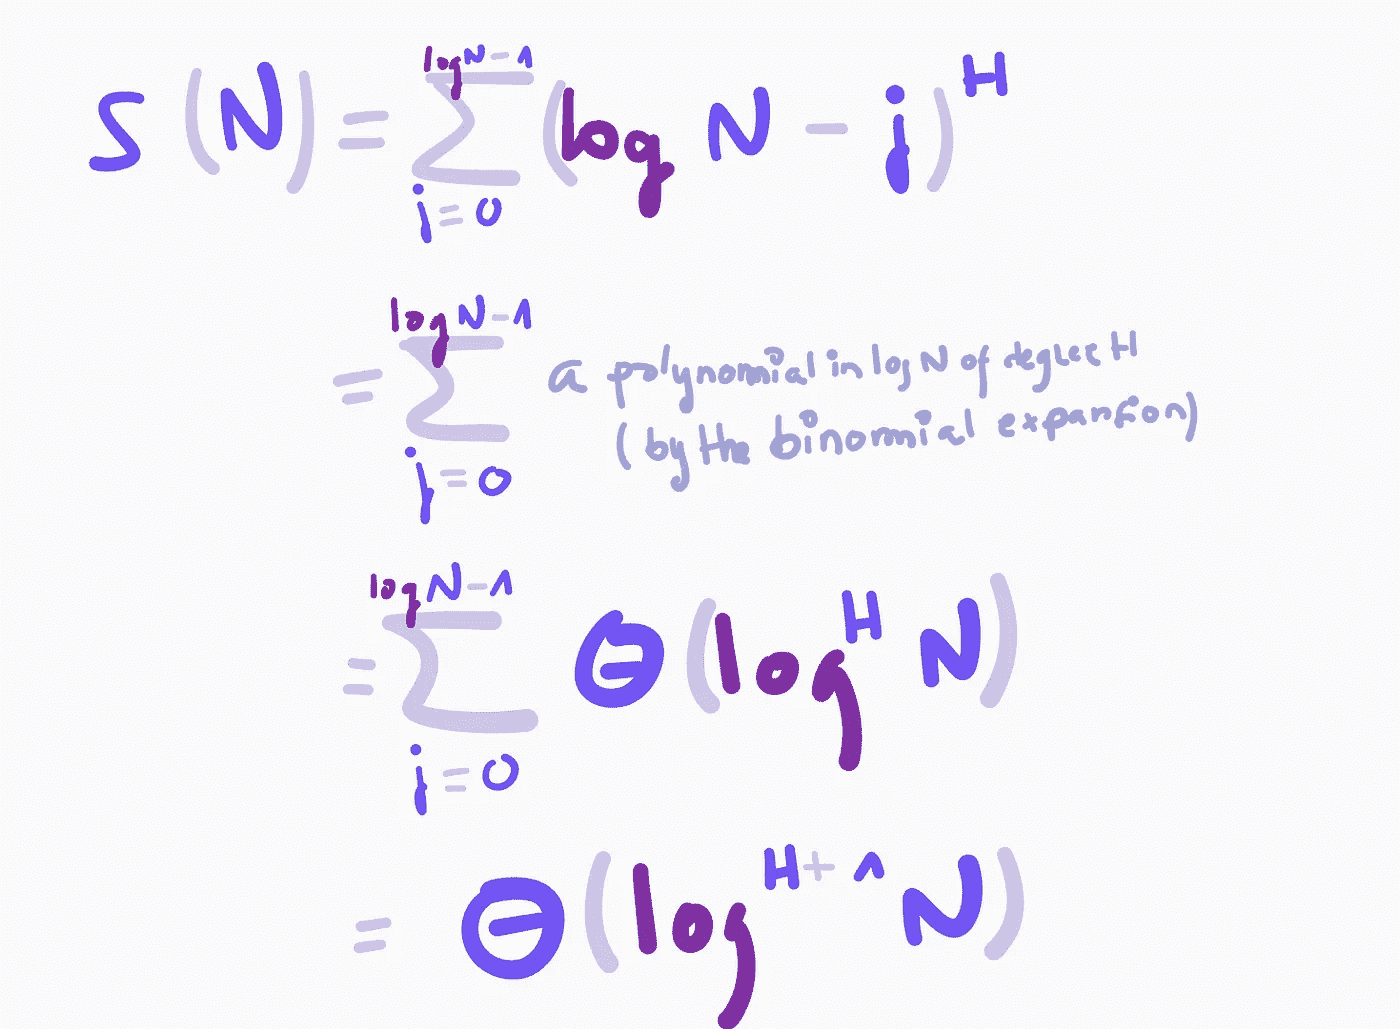 S(N) = \sum_{j=0}^{log N-1} (log N - j)^H
= \sum_{j=0}^{log N-1} a polynomial in log N of degree H
(by the binomial expansion)
= \sum_{j=0}^{log N-1} Θ(log^H N)
= Θ(log^{H+1} N)